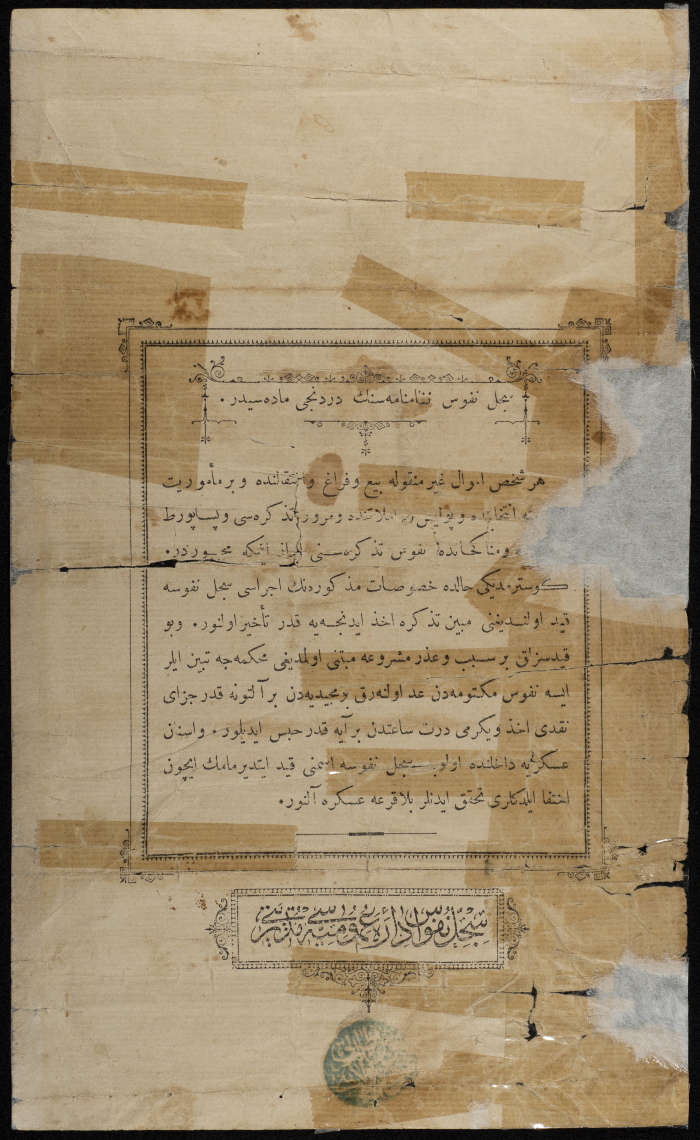 سجل نفوس نظامنامه‌سنك دردنجی ماده‌سیدر .
هر شخص اموال غیر منقوله بیع و فراغ و انتقالنده و بر مأموریت
انتخابنده و پولیس معاملاتنده و مرور تذكره‌سی و پساپورط
ومناكحاتده نفوس تذكره‌سنی ابراز ایتمكه مجبوردر .
كوسترمدیكی حالده خصوصات مذكوره‌نك اجراسی سجل نفوسه
قید اولندیغنی مبین تذكره اخذ ایدنجه‌یه قدر تأخیر اولنور . وبو
قیدسزلق بر سبب و عذر مشروعه مبتنی اولمدیغی محكمه‌جه تبین ایلر
ایسه نفوس مكتومه‌دن عد اولنه‌رق بر مجیدیه‌دن بر آلتونه قدر جزای
نقدی اخذ ویكرمی درت ساعتدن بر آیه قدر حبس ایدیلور . واسنان
عسكریه داخلنده اولوب سجل نفوسه اسمنی قید ایتدیرمامك ایچون
اختفا ایلدكلری تحقق ایدنلر بلا قرعه عسكره آلنور .
سجل نفوس اداره عمومیه سی مدیریتی